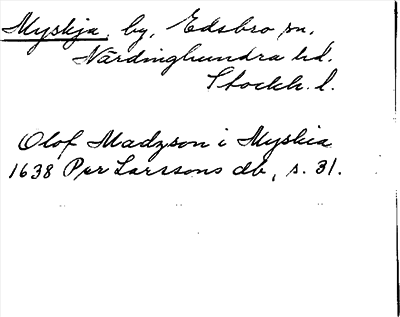 Myskja, by, Edsbro sn,
Närdinghundra hd.
Stockh. l.
Olof Madzson i Myskia
1638 Per Larssons db, s. 31.